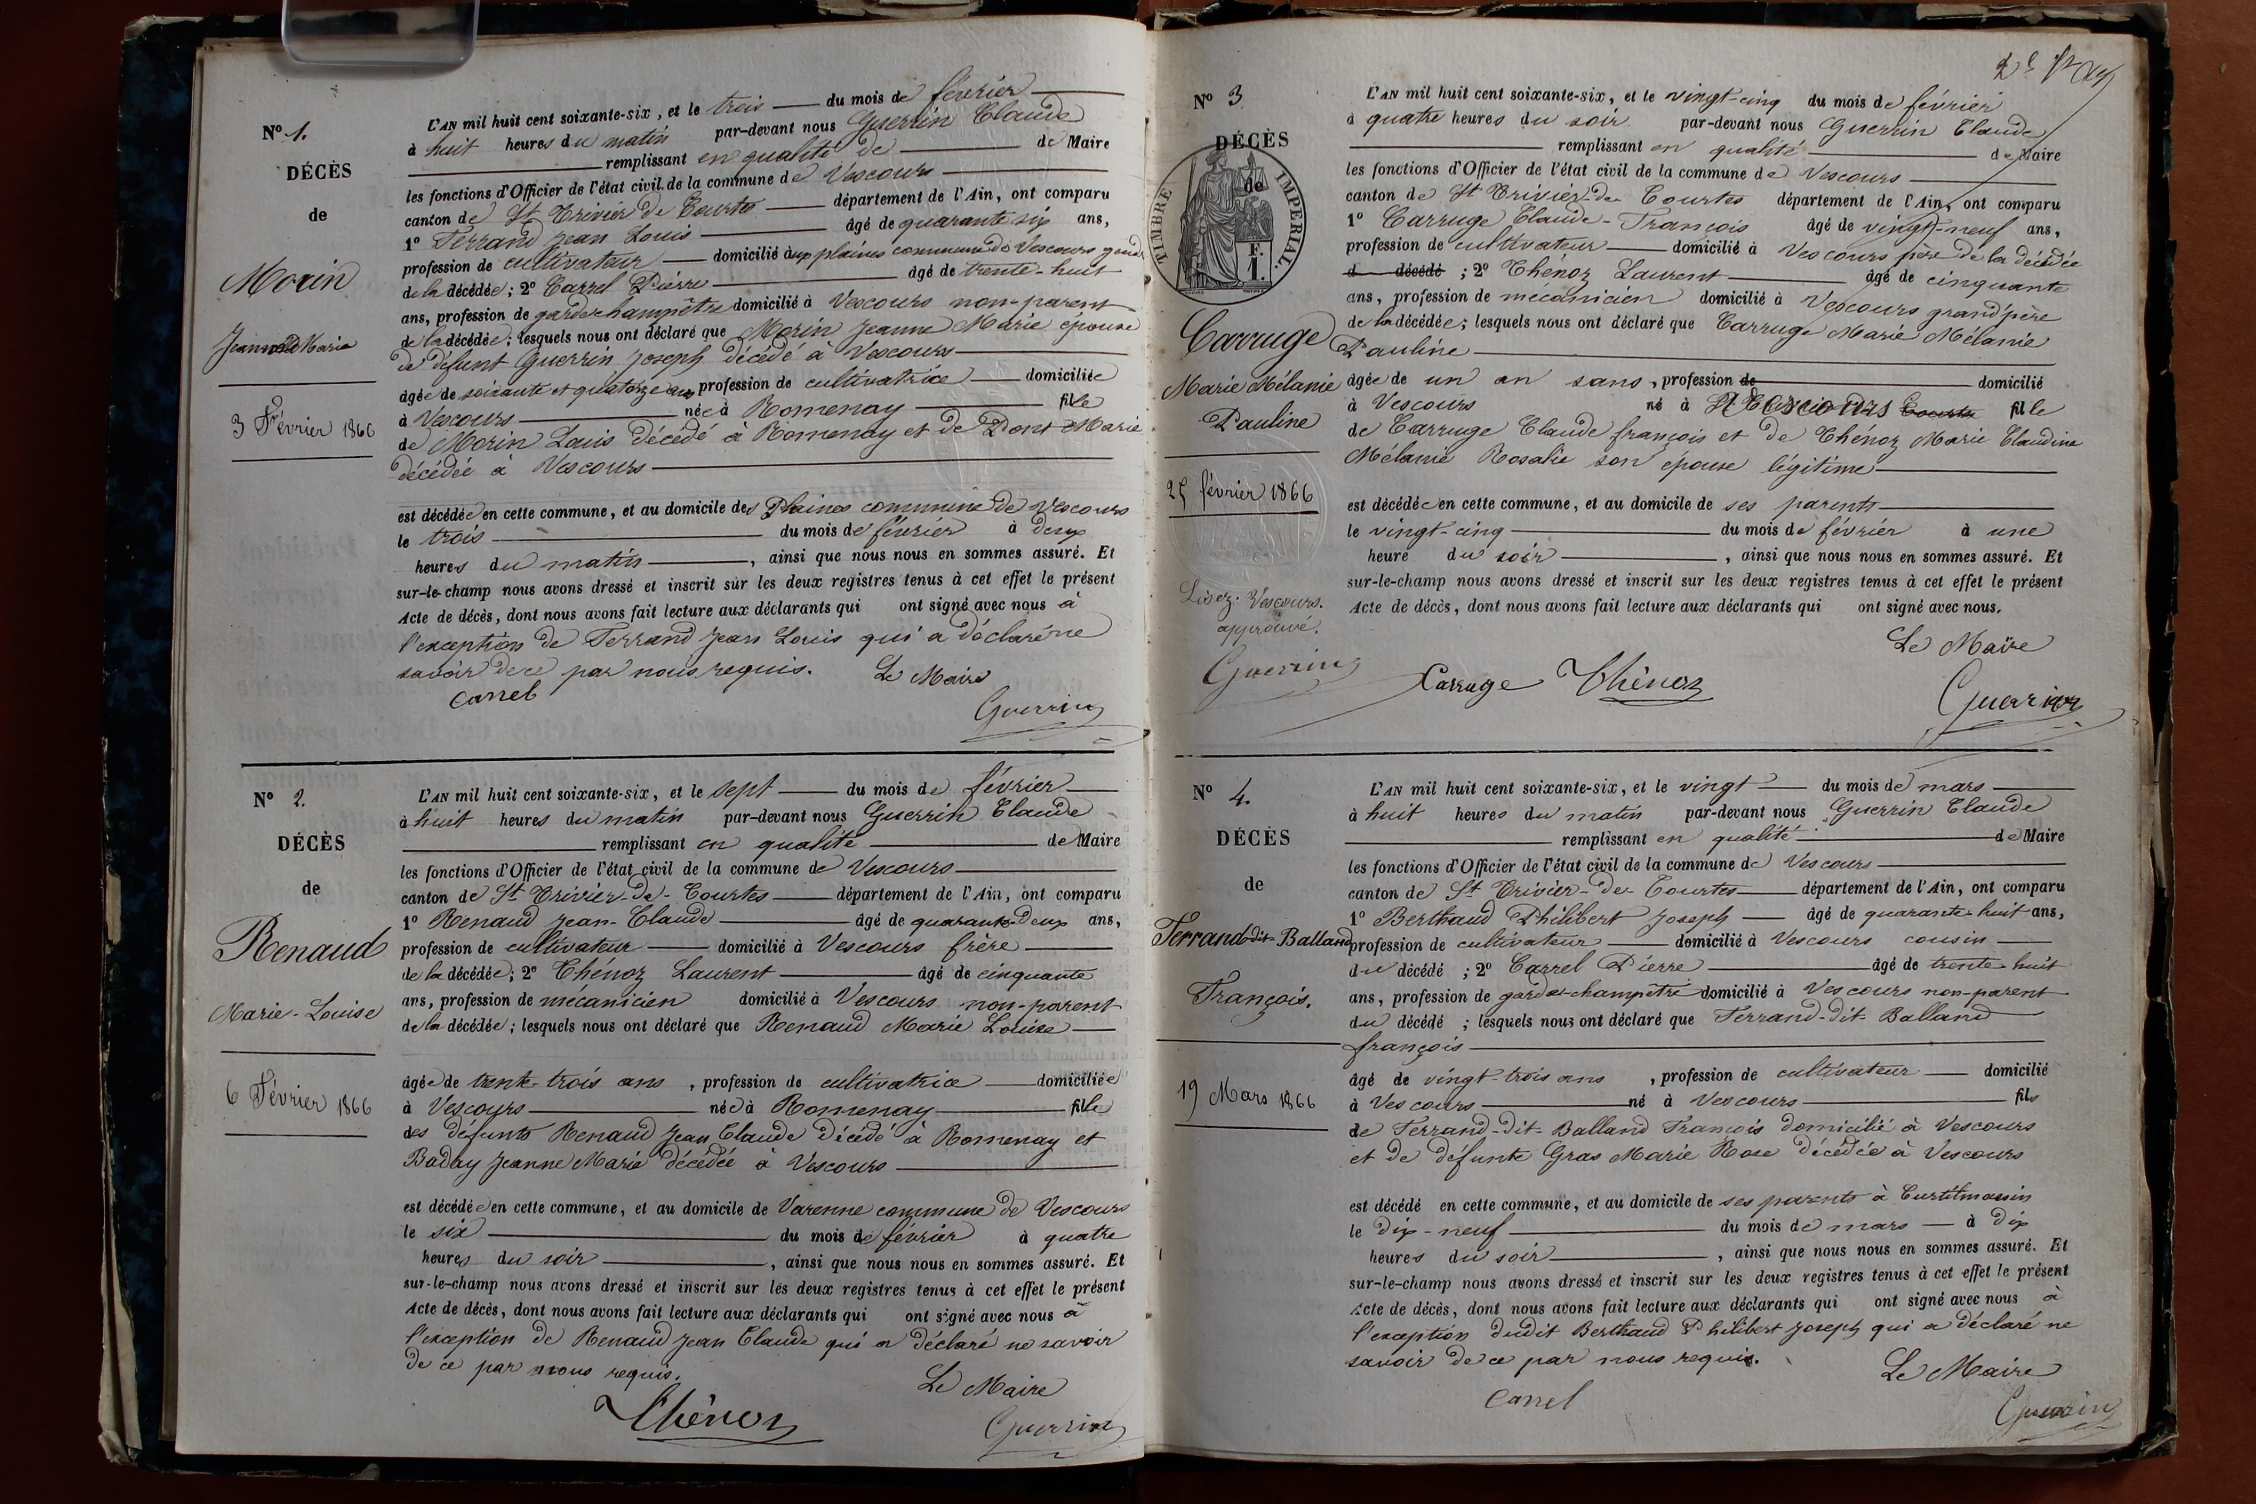 N° 1.
DÉCÈS
de
Morin
Jeanne Marie
3 Février 1866
L'AN mil huit cent soixante-six, et le trois du mois de février
à huit heures du matin par-devant nous Guerrin Claude
remplissant en qualité de de Maire
les fonctions d'Officier de l'état civil de la commune de Vescours
canton de St Trivier de Courtes département de l'Ain, ont comparu
1° Ferrand Jean Louis âgé de quarante six ans,
profession de cultivateur domicilié aux plaines commune de Vescours gendre
de la décédée ; 2° Carrel Pierre âgé de trente-huit
ans, profession de garde-champêtre domicilié à Vescours non-parent
de la décédée ; lesquels nous ont déclaré que Morin Jeanne Marie épouse
de défunt Guerrin Joseph décédé à Vescours
âgée de soixante et quatorze ans profession de cultivatrice domiciliée
à Vescours née à Romenay fille
de Morin Louis décédé à Romenay et de Pont Marie
décédée à Vescours
est décédée en cette commune, et au domicile des Plaines commune de Vescours
le trois du mois de février à deux
heures du matin , ainsi que nous nous en sommes assuré. Et
sur-le-champ nous avons dressé et inscrit sur les deux registres tenus à cet effet le présent
Acte de décès, dont nous avons fait lecture aux déclarants qui ont signé avec nous à
l'exception de Ferrand Jean Louis qui a déclaré ne
savoir de ce par nous requis. Le Maire
Carrel
Guerrin
N° 2.
DÉCÈS
de
Renaud
Marie-Louise
6 Février 1866
L'AN mil huit cent soixante-six, et le sept du mois de février
à huit heures du matin par-devant nous Guerrin Claude
remplissant en qualité de Maire
les fonctions d'Officier de l'état civil de la commune de Vescours
canton de St Trivier-de-Courtes département de l'Ain, ont comparu
1° Renaud Jean-Claude âgé de quarante-deux ans,
profession de cultivateur domicilié à Vescours frère
de la décédée ; 2° Thénoz Laurent âgé de cinquante
ans, profession de mécanicien domicilié à Vescours non-parent
de la décédée ; lesquels nous ont déclaré que Renaud Marie Louise
âgée de trente-trois ans , profession de cultivatrice domiciliée
à Vescours née à Romenay fille
des défunts Renaud Jean Claude décédé à Romenay et
Baday Jeanne Marie décédée à Vescours
est décédée en cette commune, et au domicile de Varenne commune de Vescours
le six du mois de février à quatre
heures du soir , ainsi que nous nous en sommes assuré. Et
sur-le-champ nous avons dressé et inscrit sur les deux registres tenus à cet effet le présent
Acte de décès, dont nous avons fait lecture aux déclarants qui ont signé avec nous à
l'exception de Renaud Jean Claude qui a déclaré ne savoir
de ce par nous requis.
Le Maire
Thénoz
Guerrin
N° 3
DÉCÈS
de
TIMBRE IMPERIAL.
F.
1.
Carruge
Marie Mélanie
Pauline
25 février 1866
Lisez: Vescours.
approuvé.
Guerrin
L'AN mil huit cent soixante-six, et le vingt-cinq du mois de février
à quatre heures du soir par-devant nous Guerrin Claude
remplissant en qualité de Maire
les fonctions d'Officier de l'état civil de la commune de Vescours
canton de St Trivier-de-Courtes département de l'Ain, ont comparu
1° Carruge Claude-François âgé de vingt-neuf ans,
profession de cultivateur domicilié à Vescours père de la décédée
d décédé ; 2° Thénoz Laurent âgé de cinquante
ans, profession de mécanicien domicilié à Vescours grand'père
de la décédée ; lesquels nous ont déclaré que Carruge Marie Mélanie
Pauline
âgée de un an sans , profession de domicilié
à Vescours né à Vescours Courtes fille
de Carruge Claude françois et de Thénoz Marie Claudine
Mélanie Rosalie son épouse légitime
est décédée en cette commune, et au domicile de ses parents
le vingt-cinq du mois de février à une
heure du soir , ainsi que nous nous en sommes assuré. Et
sur-le-champ nous avons dressé et inscrit sur les deux registres tenus à cet effet le présent
Acte de décès, dont nous avons fait lecture aux déclarants qui ont signé avec nous.
Le Maire
Carruge Thénoz
Guerrin
N° 4.
DÉCÈS
de
Ferrand-dit-Balland
François.
19 Mars 1866
L'AN mil huit cent soixante-six, et le vingt du mois de mars
à huit heures du matin par-devant nous Guerrin Claude
remplissant en qualité de Maire
les fonctions d'Officier de l'état civil de la commune de Vescours
canton de St Trivier-de-Courtes département de l'Ain, ont comparu
1° Berthaud Philibert Joseph âgé de quarante-huit ans,
profession de cultivateur domicilié à Vescours cousin
du décédé ; 2° Carrel Pierre âgé de trente-huit
ans, profession de garde-champêtre domicilié à Vescours non-parent
du décédé ; lesquels nous ont déclaré que Ferrand-dit-Balland
françois
âgé de vingt-trois ans , profession de cultivateur domicilié
à Vescours né à Vescours fils
de Ferrand-dit-Balland François domicilié à Vescours
et de défunte Gras Marie Rose décédée à Vescours
est décédé en cette commune, et au domicile de ses parents à Curtilmassin
le dix-neuf du mois de mars à dix
heures du soir , ainsi que nous nous en sommes assuré. Et
sur-le-champ nous avons dressé et inscrit sur les deux registres tenus à cet effet le présent
Acte de décès, dont nous avons fait lecture aux déclarants qui ont signé avec nous à
l'exception dudit Berthaud Philibert Joseph qui a déclaré ne
savoir de ce par nous requis.
Le Maire
Carrel
Guerrin